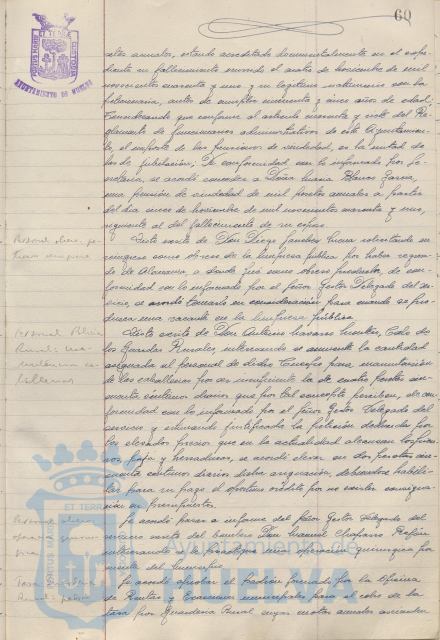 60
PORTUS MARIS ET TERRAE CUSTODIA
AYUNTAMIENTO DE HUELVA
setas anuales, estando acreditado documentalmente en el expe-
diente su fallecimiento ocurrido el cuatro de noviembre de mil
novecientos cuarenta y uno y su legítimo matrimonio con la
peticionaria, antes de cumplir cincuenta y cinco años de edad.
Considerando que conforme al artículo cuarenta y siete del Re-
glamento de funcionarios administrativos de este Ayuntamien-
to, el importe de las pensiones de viudedad, es la mitad de
las de jubilación, De conformidad con lo informado por Se-
cretaría, se acordó conceder a Doña María Blanco Garcia,
una pensión de viudedad de mil pesetas anuales a partir
del día cinco de noviembre de mil novecientos cuarenta y uno,
siguiente al del fallecimiento de su esposo.
Visto escrito de Don Diego Sánchez solicitando su
reingreso como obrero de la limpieza pública por haber regresa-
do de Alemania, a donde fué como obrero productor, de con-
formidad con lo informado por el Señor Gestor Delegado del ser-
vicio, se acordó tomarlo en consideración para cuando se pro-
duzca una vacante en la limpieza pública.
Visto escrito de Don Antonio Cabo de
los Guardas Rurales, interesando se aumente la cantidad
asignada al personal de dicho Cuerpo para manutención
de las caballerías por ser insuficiente la de cuatro pesetas cin-
cuenta céntimos diarios que por tal concepto perciben, de con-
formidad con lo informado por el Señor Gestor Delegado del
servicio y estimando justificada la petición deducida por
los elevados precios que en la actualidad alcanzan los pien-
sos, paja y herraduras, se acordó elevar en dos pesetas cin-
cuenta céntimos diarios dicha asignación, debiéndose habili-
tar para su pago el oportuno crédito por no existir consigna-
ción en Presupuestos.
Se acordó pasar a informe del Señor Gestor Delegado del
servicio escrito del bombero Don Manuel
interesando se una operación quirúrgica por
cuenta del Municipio.
Se acordó aprobar el Padrón formado por la Oficina
de Rentas y Exacciones municipales para el cobro de la
tasa por Guardería Rural cuyas cuotas anuales ascienden
Personal
Personal Policía
Rural:
caballerías
Personal
Tasa
Rural: padrón
PORTUS MARIS ET TERRAE CUSTODIA
Ayuntamiento de
HUELVA